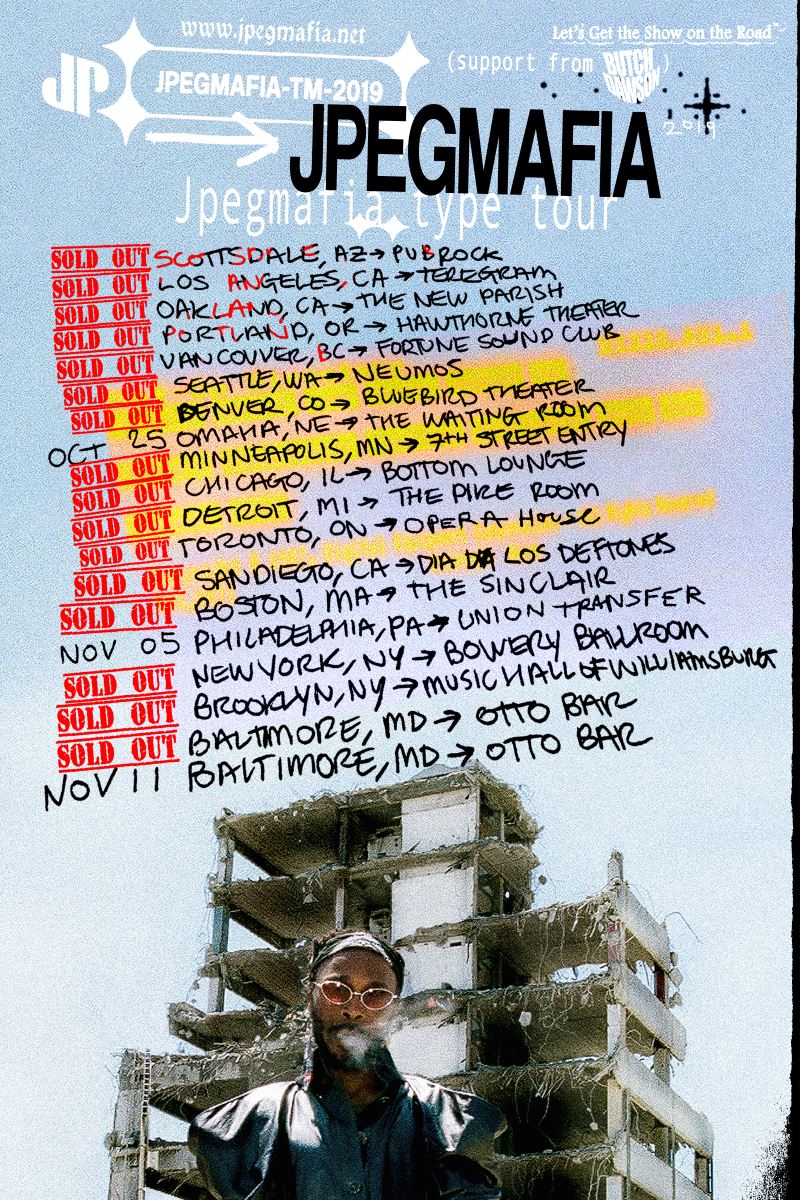 www.jpegmafia.net
Let's Get the Show on the Road™
JP
JPEGMAFIA-TM-2019
(support from BUTCH DAWSON)
JPEGMAFIA
2019
Jpegmafia type tour
SOLD OUT SCOTTSDALE, AZ→ PUB ROCK
SOLD OUT LOS ANGELES, CA → TEREGRAM
SOLD OUT OAKLAND, CA → THE NEW PARISH
SOLD OUT PORTLAND, OR → HAWTHORNE THEATER
SOLD OUT VANCOUVER, BC → FORTUNE SOUND CLUB
SOLD OUT SEATTLE, WA → NEUMOS
SOLD OUT DENVER, CO → BLUEBIRD THEATER
OCT 25 OMAHA, NE → THE WAITING ROOM
SOLD OUT MINNEAPOLIS, MN → 7TH STREET ENTRY
SOLD OUT CHICAGO, IL → BOTTOM LOUNGE
SOLD OUT DETROIT, MI → THE PIKE ROOM
SOLD OUT TORONTO, ON → OPERA HOUSE
SOLD OUT SAN DIEGO, CA → DIA DE LOS DEFTONES
SOLD OUT BOSTON, MA → THE SINCLAIR
NOV 05 PHILADELPHIA, PA → UNION TRANSFER
SOLD OUT NEW YORK, NY → BOWERY BALLROOM
SOLD OUT BROOKLYN, NY → MUSIC HALL OF WILLIAMSBURG
SOLD OUT BALTIMORE, MD → OTTO BAR
NOV 11 BALTIMORE, MD → OTTO BAR